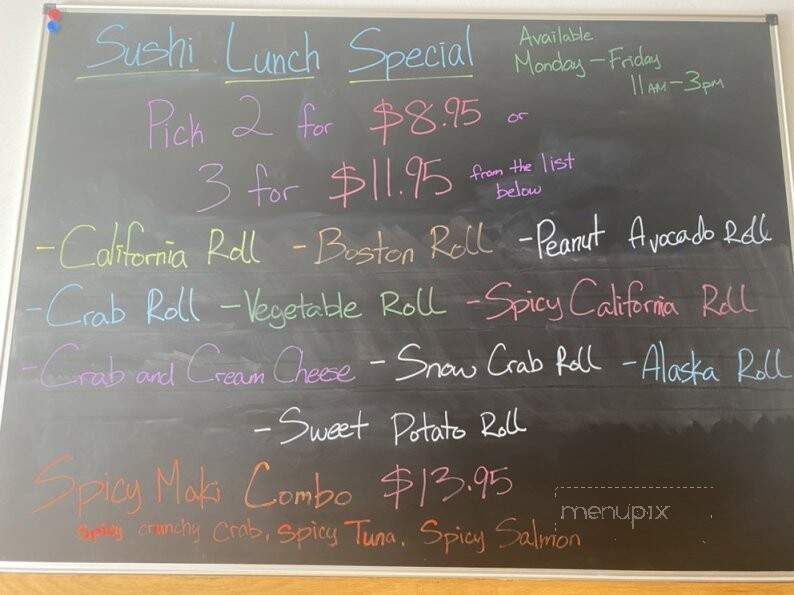 Sushi Lunch Special
Available
Monday - Friday
11 AM - 3 pm
Pick 2 for $8.95 or
3 for $11.95 from the list
below
- California Roll - Boston Roll - Peanut Avocado Roll
- Crab Roll - Vegetable Roll - Spicy California Roll
- Crab and Cream Cheese - Snow Crab Roll - Alaska Roll
- Sweet Potato Roll
Spicy Maki Combo $13.95
Spicy crunchy crab, Spicy Tuna, Spicy Salmon
menupix